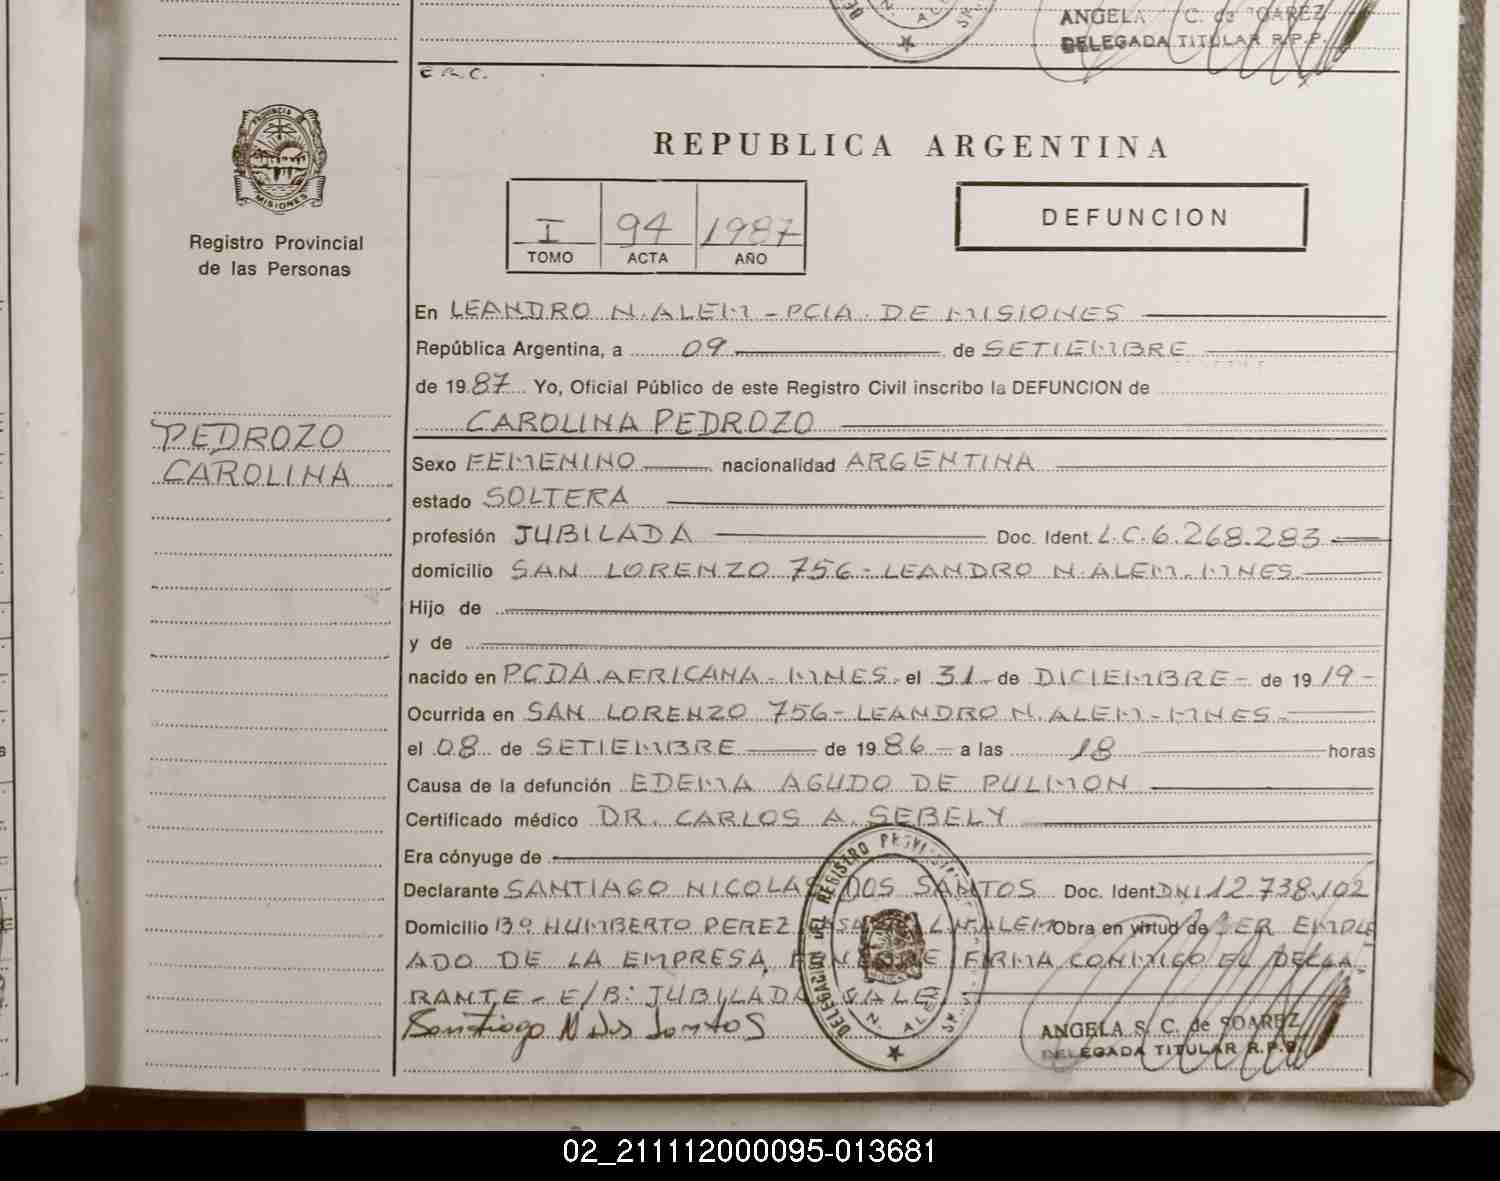 ANGELA S. C. de SOAREZ
DELEGADA TITULAR R.P.P.
E.R.C.
PROVINCIA DE
MISIONES
Registro Provincial
de las Personas
REPUBLICA ARGENTINA
I 94 1987
TOMO ACTA AÑO
DEFUNCION
En LEANDRO N. ALEM - PCIA. DE MISIONES
República Argentina, a 09 de SETIEMBRE
de 1987 Yo, Oficial Público de este Registro Civil inscribo la DEFUNCION de
CAROLINA PEDROZO
PEDROZO
CAROLINA
Sexo FEMENINO nacionalidad ARGENTINA
estado SOLTERA
profesión JUBILADA Doc. Ident. L.C. 6.268.283
domicilio SAN LORENZO 756 - LEANDRO N. ALEM. MNES.
Hijo de
y de
nacido en PCDA AFRICANA - MNES. el 31 de DICIEMBRE - de 1919 -
Ocurrida en SAN LORENZO 756 - LEANDRO N. ALEM - MNES.
el 08 de SETIEMBRE de 1986 a las 18 horas
Causa de la defunción EDEMA AGUDO DE PULMON
Certificado médico DR. CARLOS A. SEBELY
Era cónyuge de
Declarante SANTIAGO NICOLAS DOS SANTOS Doc. Ident DNI 12.738.102
Domicilio Bº HUMBERTO PEREZ CASA L.N. ALEM Obra en virtud de SER EMPLE
ADO DE LA EMPRESA FUNEBRE FIRMA CONMIGO EL DECLA-
RANTE - E/B: JUBILADA VALE
Santiago N dos Santos
DELEGACION DEL REGISTRO PROVINCIAL
L. N. ALEM
ANGELA S. C. de SOAREZ
DELEGADA TITULAR R.P.P.
02_211112000095-013681